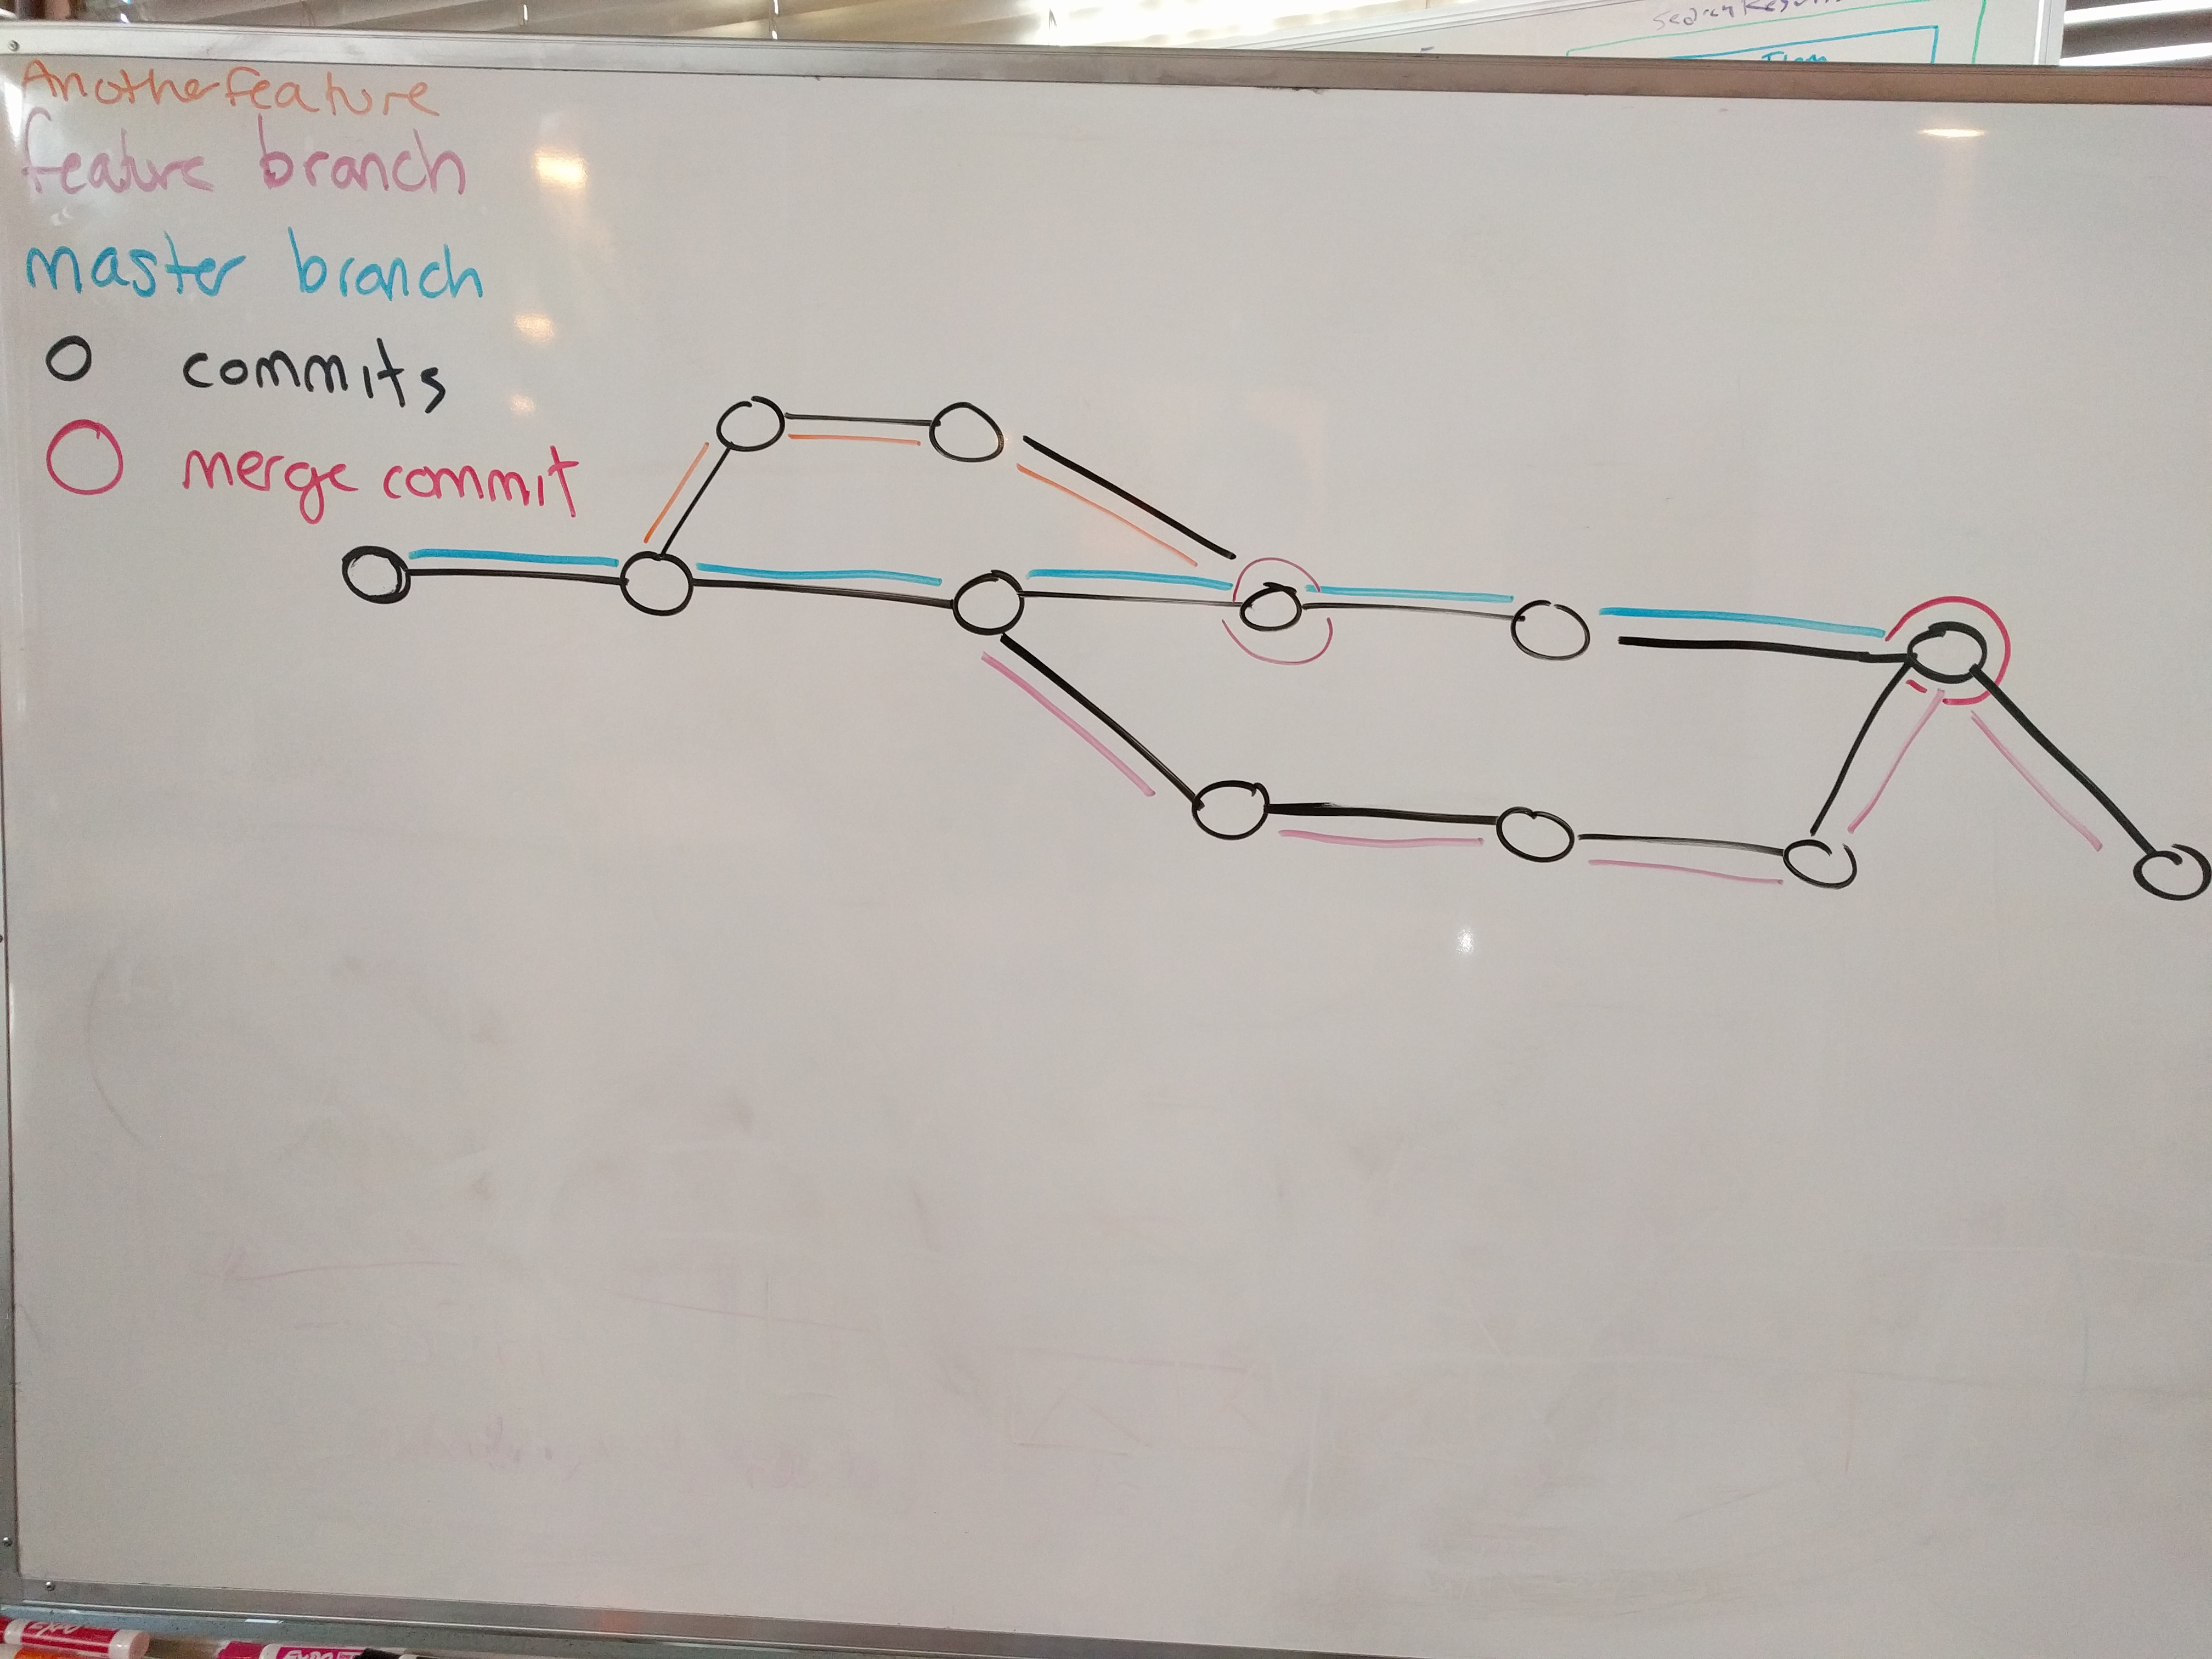 Search
Item
Another feature
feature branch
master branch
commits
merge commit
EXPO
EXPO